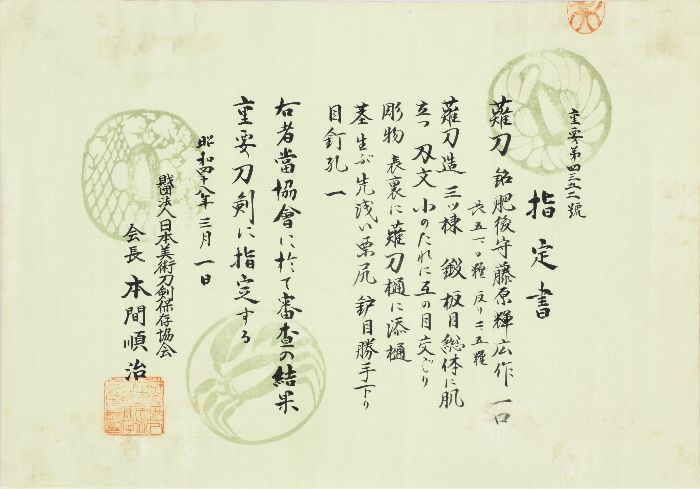 重要第四三五二號
指定書
薙刀 銘 肥後守藤原輝広作 一口
長 五一・〇糎 反り 二・五糎
薙刀造 三ッ棟 鍛 板目 総体に肌
立つ 刃文 小のたれに互の目交ごり
彫物 表裏に薙刀樋に添樋
茎 生ぶ 先浅い栗尻 鑢目勝手下り
目釘孔 一
右者當協會に於て審査の結果
重要刀剣に指定する
昭和四十八年三月一日
財団法人日本美術刀剣保存協会
会長 本間順治